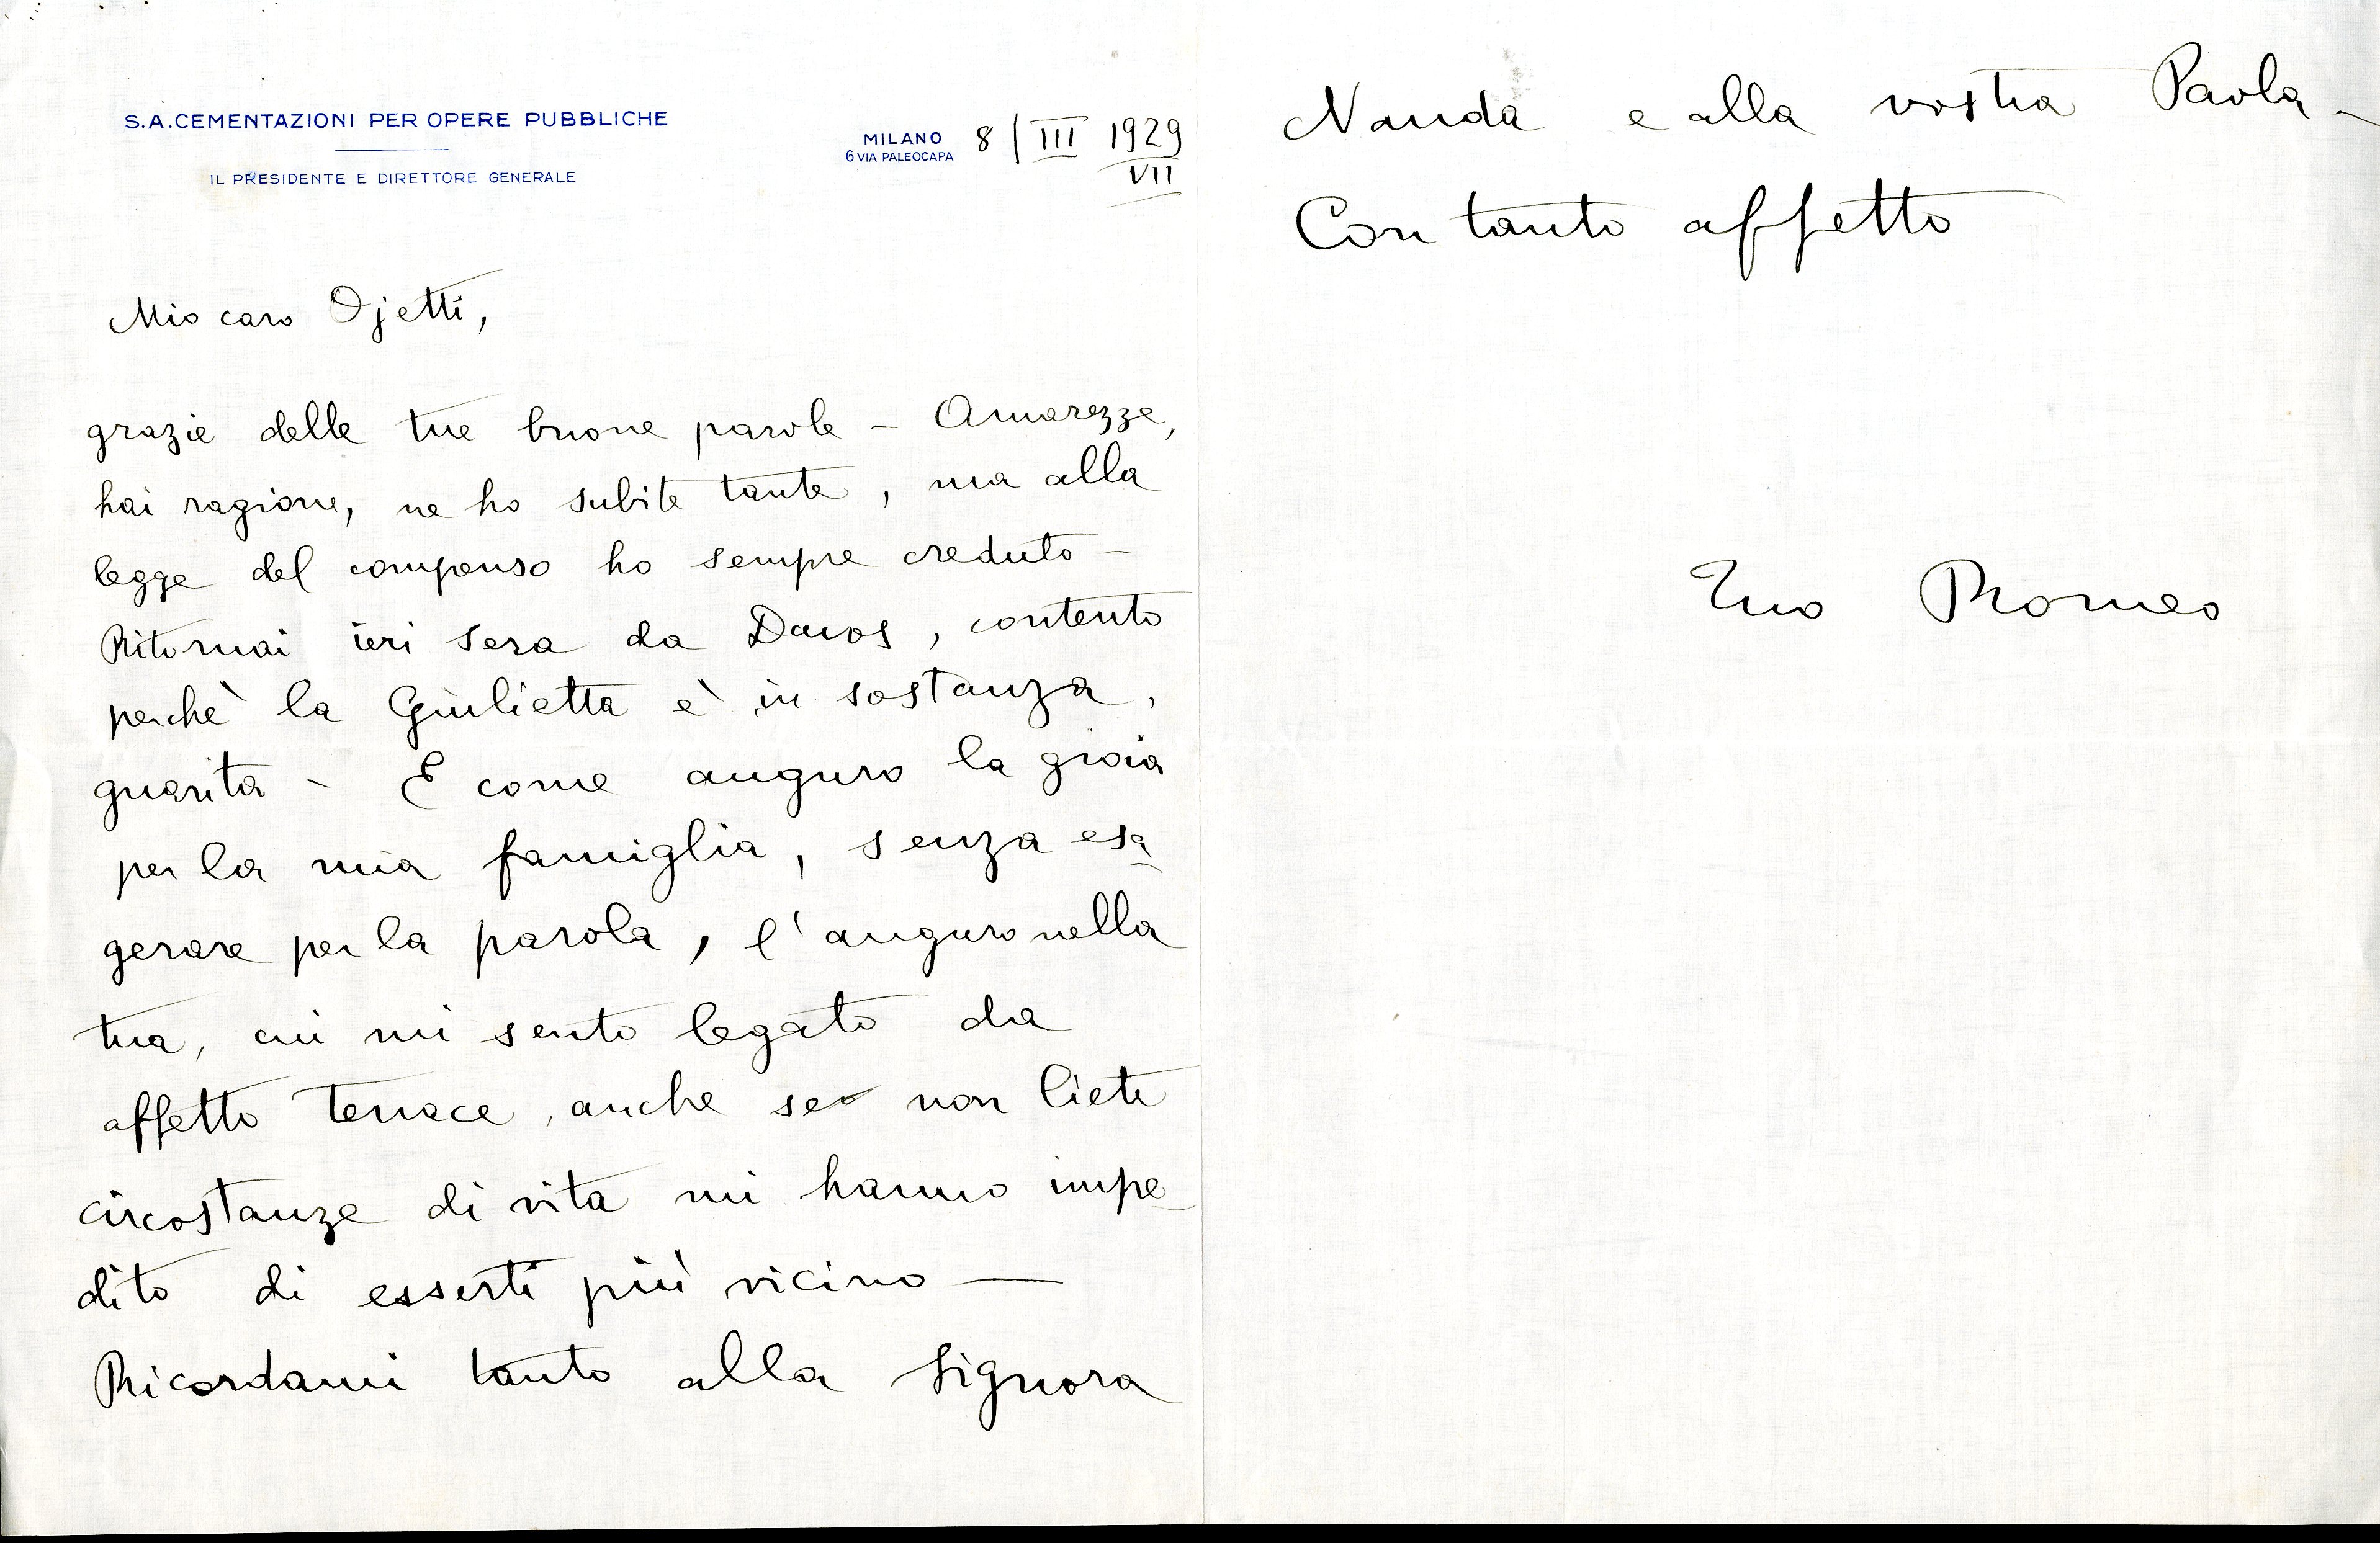 S.A. CEMENTAZIONI PER OPERE PUBBLICHE
IL PRESIDENTE E DIRETTORE GENERALE
MILANO
6 VIA PALEOCAPA
8 / III 1929
VII
Mio caro Ojetti,
grazie delle tue buone parole – Amarezze,
hai ragione, ne ho subite tante, ma alla
legge del compenso ho sempre creduto –
Ritornai ieri sera da Davos, contento
perchè la Giulietta è in sostanza,
guarita – E come auguro la gioia
per la mia famiglia, senza esa
gerare per la parola, l'auguro nella
tua, cui mi sento legato da
affetto tenace, anche se non liete
circostanze di vita mi hanno impe
dito di esserti più vicino —
Ricordami tanto alla Signora
Nanda e alla vostra Paola –
Con tanto affetto
Tuo Romeo